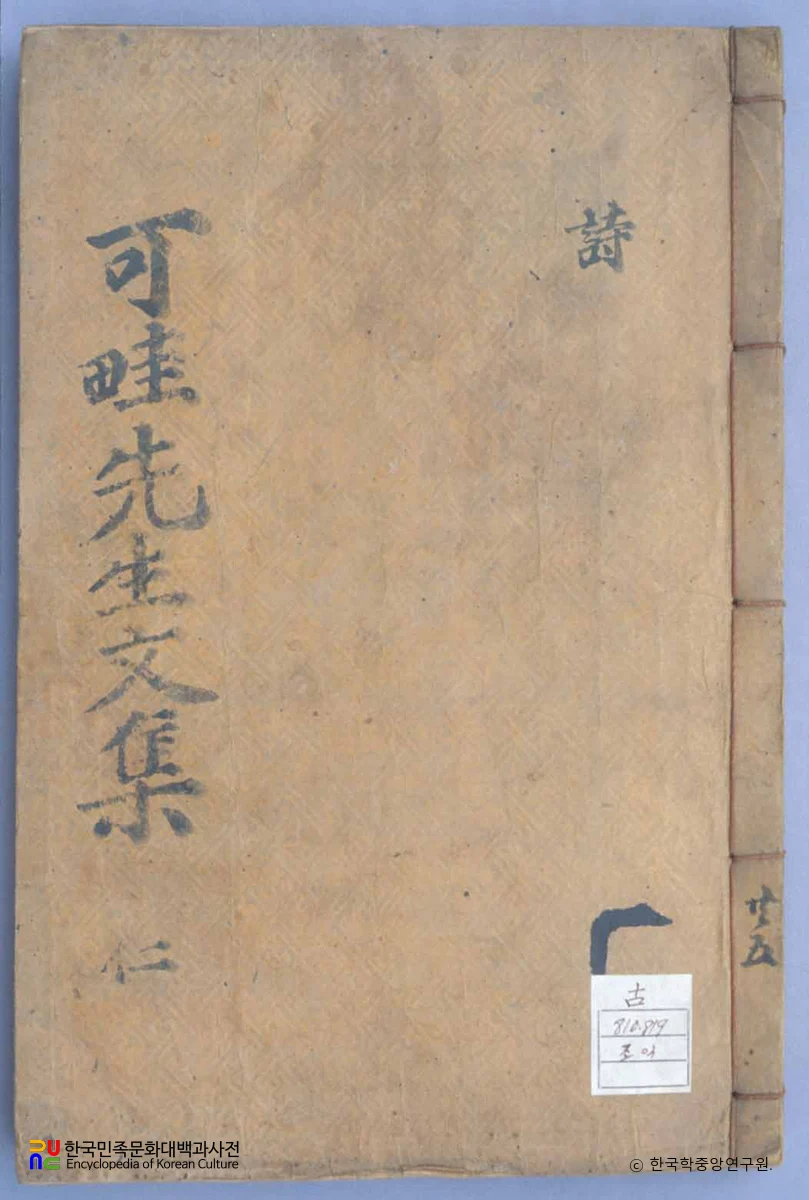 詩
可畦先生文集
仁
共五
古
810.819
조익
한국민족문화대백과사전
Encyclopedia of Korean Culture
© 한국학중앙연구원.